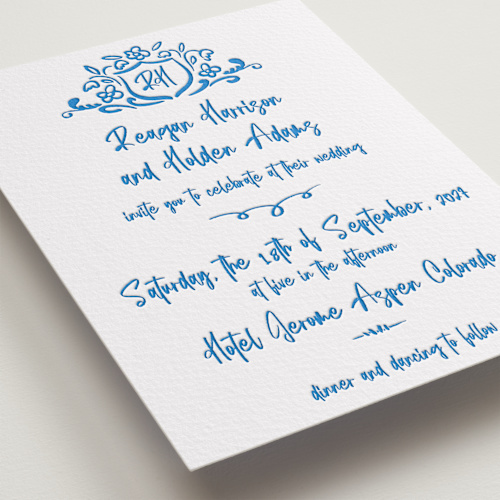 RH
Reagan Harrison
and Holden Adams
invite you to celebrate at their wedding
Saturday, the 18th of September, 2024
at five in the afternoon
Hotel Jerome Aspen Colorado
dinner and dancing to follow